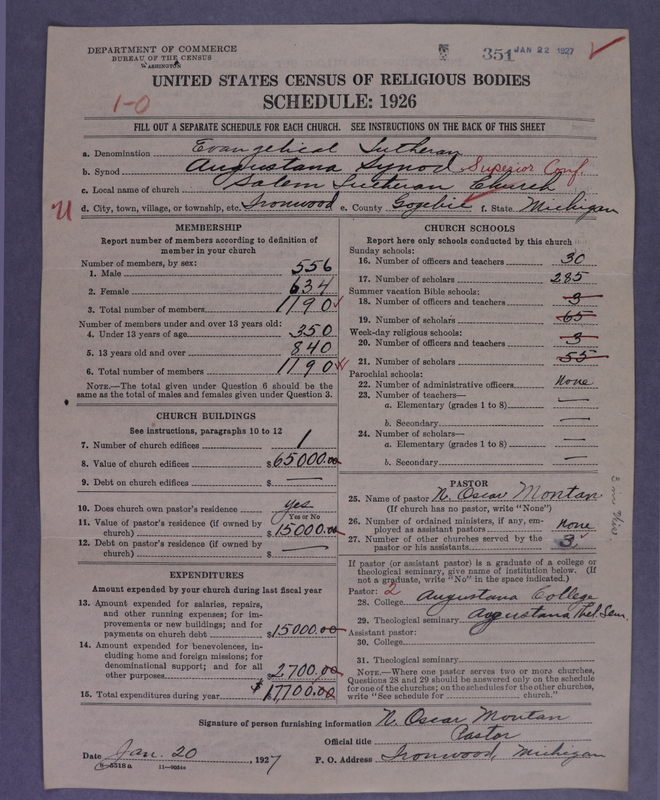 DEPARTMENT OF COMMERCE
BUREAU OF THE CENSUS
WASHINGTON
351 JAN 22 1927
UNITED STATES CENSUS OF RELIGIOUS BODIES
SCHEDULE: 1926
1-0
FILL OUT A SEPARATE SCHEDULE FOR EACH CHURCH. SEE INSTRUCTIONS ON THE BACK OF THIS SHEET
a. Denomination Evangelical Lutheran
b. Synod Augustana Synod Superior Conf.
c. Local name of church Salem Lutheran Church
U d. City, town, village, or township, etc. Ironwood e. County Gogebic f. State Michigan
MEMBERSHIP
Report number of members according to definition of
member in your church
Number of members, by sex:
1. Male 556
2. Female 634
3. Total number of members 1190
Number of members under and over 13 years old:
4. Under 13 years of age 350
5. 13 years old and over 840
6. Total number of members 1190
NOTE.—The total given under Question 6 should be the
same as the total of males and females given under Question 3.
CHURCH BUILDINGS
See instructions, paragraphs 10 to 12
7. Number of church edifices 1
8. Value of church edifices $65000.00
9. Debt on church edifices $ —
10. Does church own pastor's residence yes
Yes or No
11. Value of pastor's residence (if owned by
church) $15000.00
12. Debt on pastor's residence (if owned by
church) $ —
EXPENDITURES
Amount expended by your church during last fiscal year
13. Amount expended for salaries, repairs,
and other running expenses; for im-
provements or new buildings; and for
payments on church debt $15000.00
14. Amount expended for benevolences, in-
cluding home and foreign missions; for
denominational support; and for all
other purposes 2700.00
15. Total expenditures during year $17700.00
CHURCH SCHOOLS
Report here only schools conducted by this church
Sunday schools:
16. Number of officers and teachers 30
17. Number of scholars 285
Summer vacation Bible schools:
18. Number of officers and teachers 3
19. Number of scholars 65
Week-day religious schools:
20. Number of officers and teachers 3
21. Number of scholars 55
Parochial schools:
22. Number of administrative officers none
23. Number of teachers—
a. Elementary (grades 1 to 8) —
b. Secondary —
24. Number of scholars—
a. Elementary (grades 1 to 8) —
b. Secondary —
PASTOR
25. Name of pastor N. Oscar Montan
(If church has no pastor, write "None")
26. Number of ordained ministers, if any, em-
ployed as assistant pastors none
27. Number of other churches served by the
pastor or his assistants 3
If pastor (or assistant pastor) is a graduate of a college or
theological seminary, give name of institution below. (If
not a graduate, write "No" in the space indicated.)
Pastor: 2
28. College Augustana College
29. Theological seminary Augustana Thel. Sem.
Assistant pastor:
30. College
31. Theological seminary
NOTE.—Where one pastor serves two or more churches,
Questions 28 and 29 should be answered only on the schedule
for one of the churches; on the schedules for the other churches,
write "See schedule for church."
Signature of person furnishing information N. Oscar Montan
Official title Pastor
Date Jan. 20, 1927 P. O. Address Ironwood, Michigan
8-5518a 11-9034